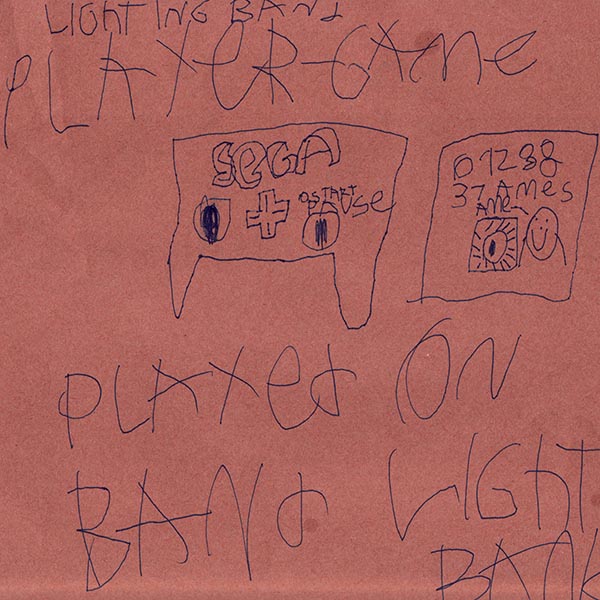 LIGHTING BAND
PLAYER-GAME
SEGA
START
PAUSE
01288
37 AMES
AME
PLAYED ON
BAND LIGHT
BANK